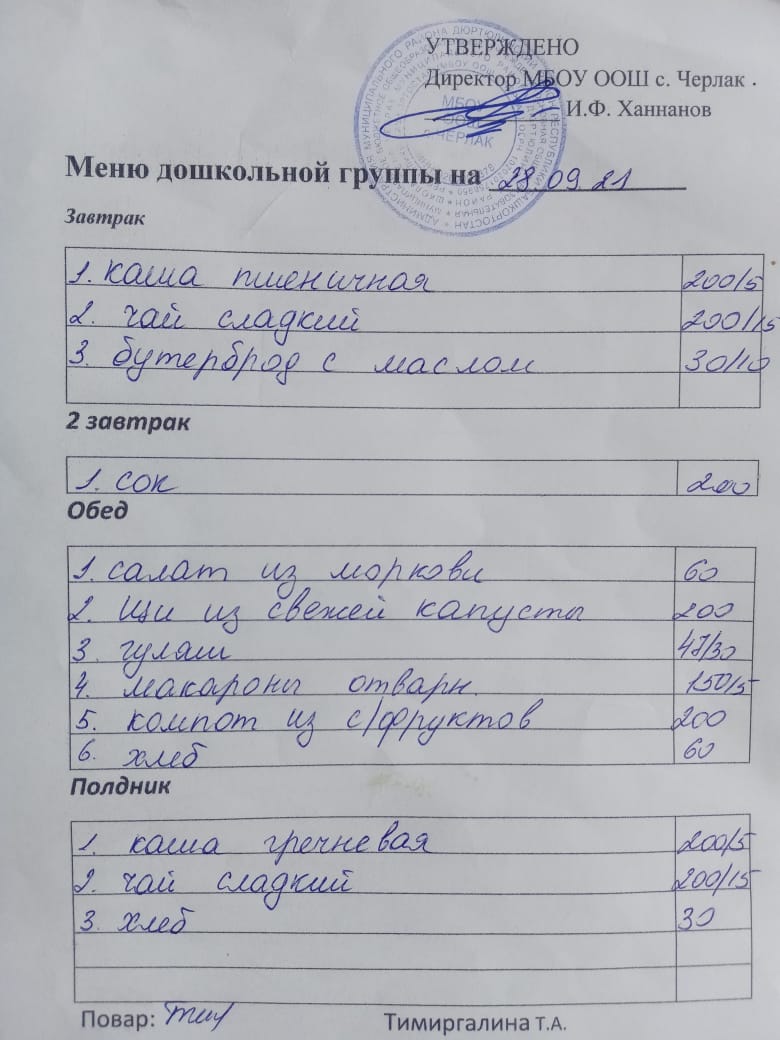 УТВЕРЖДЕНО
Директор МБОУ ООШ с. Черлак
И.Ф. Ханнанов
МБОУ
ООШ
с. ЧЕРЛАК
Меню дошкольной группы на 28 09 21
Завтрак
1. каша пшеничная 200/5
2. чай сладкий 200/15
3. бутерброд с маслом 30/10
2 завтрак
1. сок 200
Обед
1. салат из моркови 60
2. щи из свежей капусты 200
3 гуляш 47/30
4. макароны отварн. 150/5
5. компот из с/фруктов 200
6. хлеб 60
Полдник
1. каша гречневая 200/5
2. чай сладкий 200/15
3. хлеб 30
Повар: Тимиргалина Т.А.